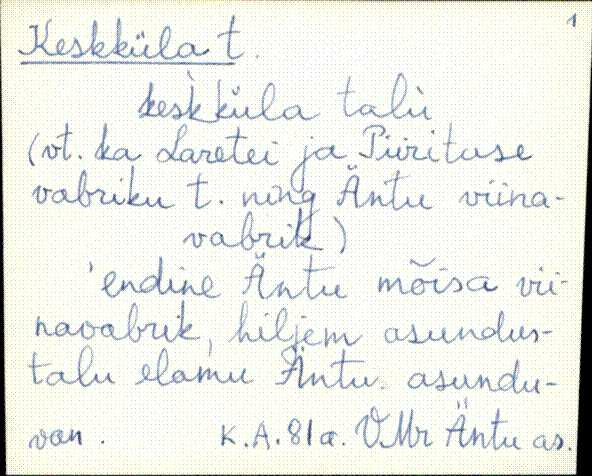 1
Keskküla t.
keskküla talu
(vt. ka Laretei ja Piirituse
vabriku t. ning Äntu viina-
vabrik)
'endine Äntu mõisa vii-
navabrik, hiljem asundus-
talu elamu Äntu asundu-
van. K.A. 81a. VMr Äntu as.